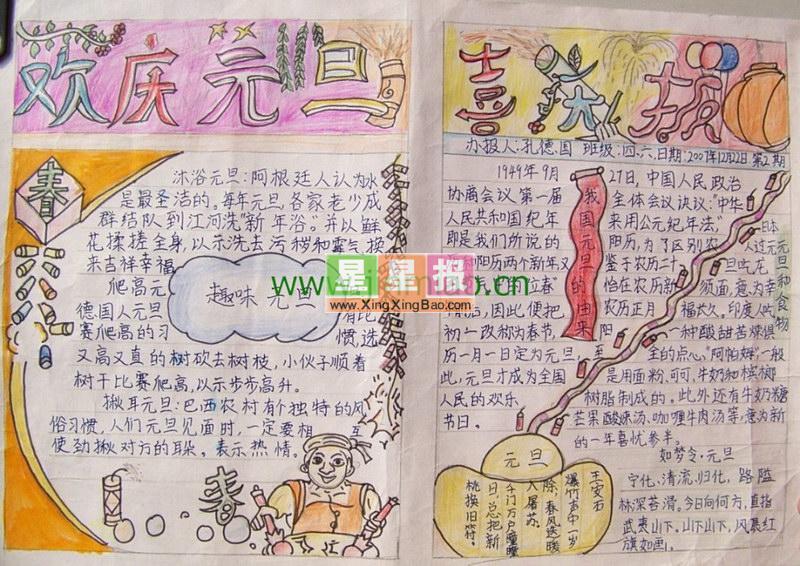 欢庆元旦
春
沐浴元旦：阿根廷人认为水
是最圣洁的。每年元旦，各家老少成
群结队到江河洗"新年浴。并以鲜
花揉搓全身，以示洗去污秽和霉气换
来吉祥幸福
趣味元旦
爬高元
德国人元旦
赛爬高的习
惯，选
又高又直的树砍去树枝，小伙子顺着
树干比赛爬高，以示步步高升。
揪耳元旦：巴西农村有个独特的风
俗习惯，人们元旦见面时，一定要相互
使劲揪对方的耳朵。表示热情。
春
喜大报
办报人：孔德国 班级：四、六、日期：2007年12月22日 第2期
我国元旦的由来
1949年9月27日，中国人民政治
协商会议第一届全体会议决议："中华
人民共和国纪年采用公元纪年法"
即是我们所说的阳历，为了区别农
和阳历两个新年又鉴于农历二十
的"立春"恰在农历新
因此，便把农历正月
初一改称为春节，阳
历一月一日定为元旦，至
此，元旦才成为全国
人民的欢乐
节日。
元旦和食物
日本
人过元
旦吃龙
须面，意为幸
福长久。印度人吃
一种酸甜苦辣俱
全的点心"阿帕姆"一般
是用面粉、可可、牛奶和槟榔
树脂制成的。此外还有牛奶糖
芒果酸味汤、咖喱牛肉汤等意为新
的一年喜忧参半。
元旦
王安石
爆竹声中一岁
除，春风送暖
入屠苏。
千门万户曈曈
日，总把新
桃换旧符。
如梦令·元旦
宁化、清流、归化，路隘
林深苔滑。今日向何方，直指
武夷山下。山下山下，风展红
旗如画。
星星报
www.XingXingBao.com